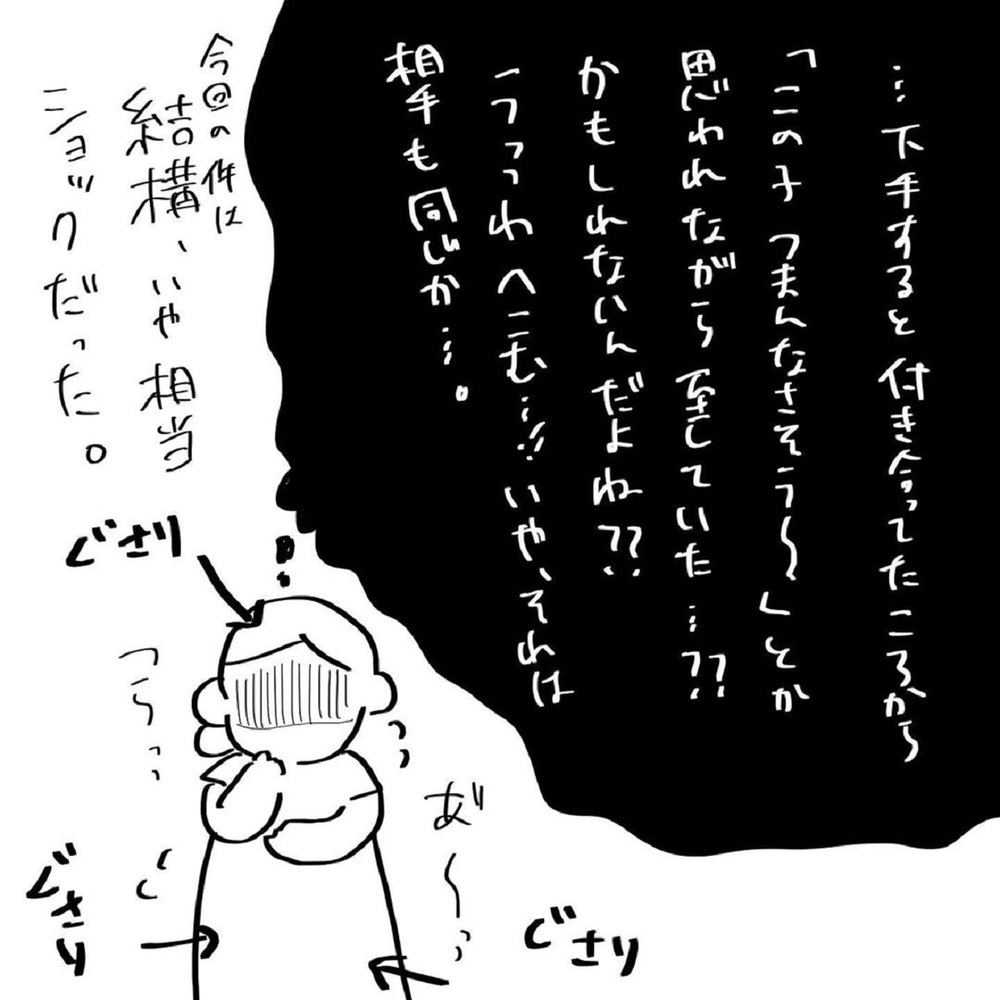 …下手すると付き合ってたころから
「この子つまんなさそう〜」とか
思われながら過ごしていた…??
かもしれないんだよね??
うっわへこむ…!!いや、それは
相手も同じか…。
今回の件は
結構、いや相当
ショックだった。
ぐさり
つらっ…
あ゛〜っ…
ぐさり
ぐさり